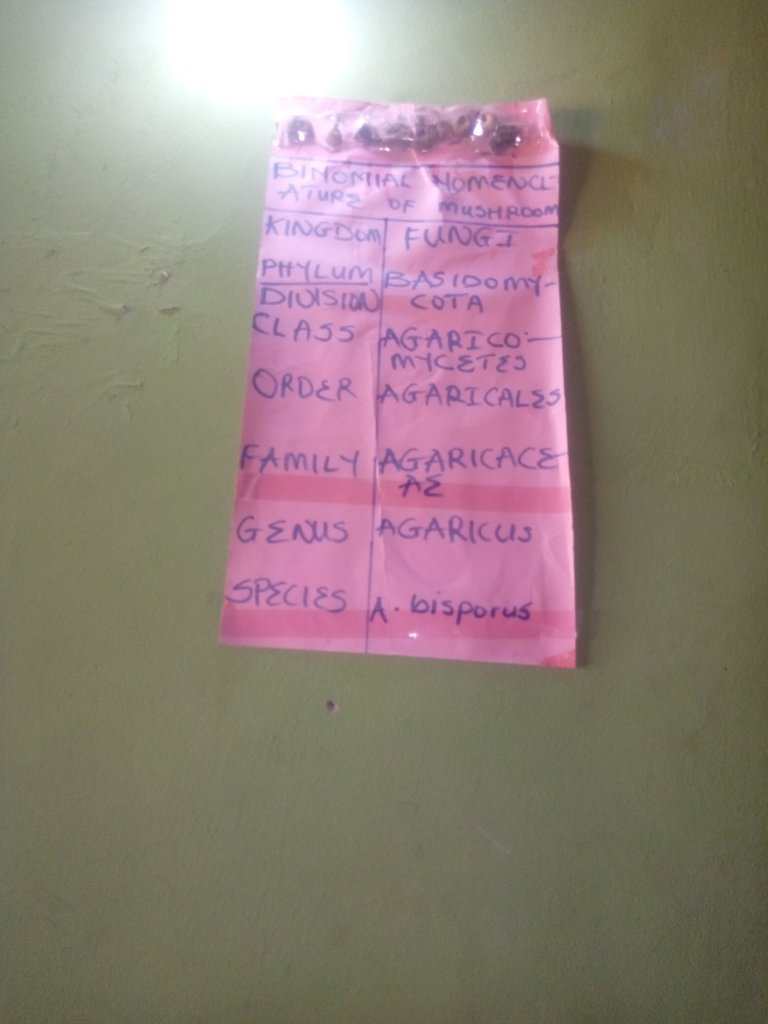 BINOMIAL NOMENCL-
ATURE OF MUSHROOM
KINGDOM FUNGI
PHYLUM BASIDOMY-
DIVISION COTA
CLASS AGARICO-
MYCETES
ORDER AGARICALES
FAMILY AGARICACE
AE
GENUS AGARICUS
SPECIES A. bisporus